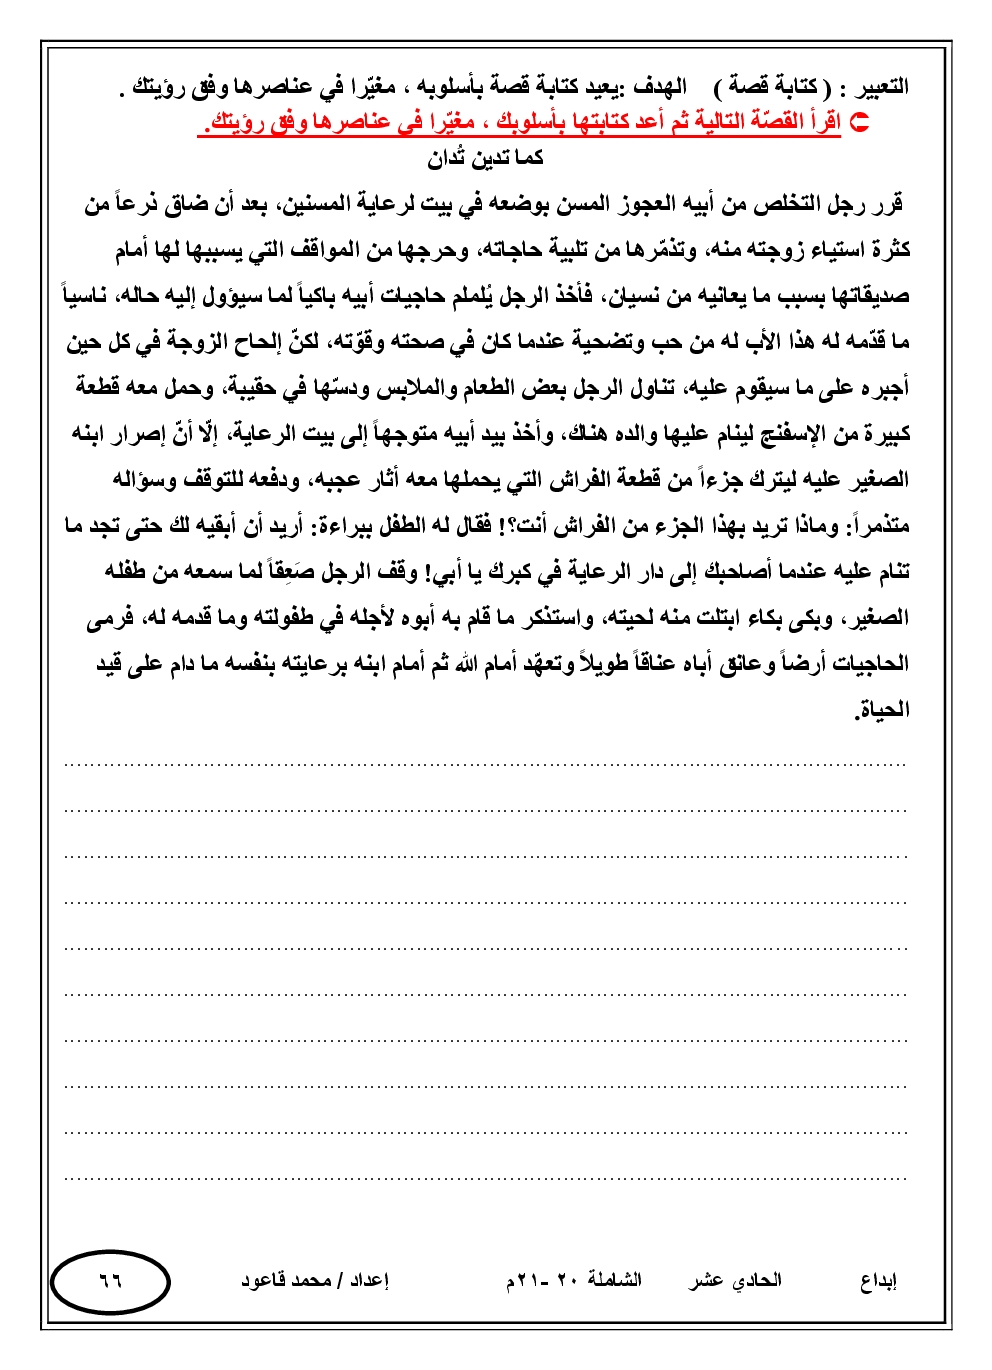 التعبير : ( كتابة قصة )    الهدف :يعيد كتابة قصة بأسلوبه ، مغيّرا في عناصرها وفق رؤيتك .
➲ اقرأ القصّة التالية ثم أعد كتابتها بأسلوبك ، مغيّرا في عناصرها وفق رؤيتك.
كما تدين تُدان
قرر رجل التخلص من أبيه العجوز المسن بوضعه في بيت لرعاية المسنين، بعد أن ضاق ذرعاً من
كثرة استياء زوجته منه، وتذمّرها من تلبية حاجاته، وحرجها من المواقف التي يسببها لها أمام
صديقاتها بسبب ما يعانيه من نسيان، فأخذ الرجل يُلملم حاجيات أبيه باكياً لما سيؤول إليه حاله، ناسياً
ما قدّمه له هذا الأب له من حب وتضحية عندما كان في صحته وقوّته، لكنّ إلحاح الزوجة في كل حين
أجبره على ما سيقوم عليه، تناول الرجل بعض الطعام والملابس ودسّها في حقيبة، وحمل معه قطعة
كبيرة من الإسفنج لينام عليها والده هناك، وأخذ بيد أبيه متوجهاً إلى بيت الرعاية، إلّا أنّ إصرار ابنه
الصغير عليه ليترك جزءاً من قطعة الفراش التي يحملها معه أثار عجبه، ودفعه للتوقف وسؤاله
متذمراً: وماذا تريد بهذا الجزء من الفراش أنت؟! فقال له الطفل ببراءة: أريد أن أبقيه لك حتى تجد ما
تنام عليه عندما أصاحبك إلى دار الرعاية في كبرك يا أبي! وقف الرجل صَعِقاً لما سمعه من طفله
الصغير، وبكى بكاء ابتلت منه لحيته، واستذكر ما قام به أبوه لأجله في طفولته وما قدمه له، فرمى
الحاجيات أرضاً وعانق أباه عناقاً طويلاً وتعهّد أمام الله ثم أمام ابنه برعايته بنفسه ما دام على قيد
الحياة.
إبداع    الحادي عشر    الشاملة ٢٠ -٢١م    إعداد / محمد قاعود    ٦٦